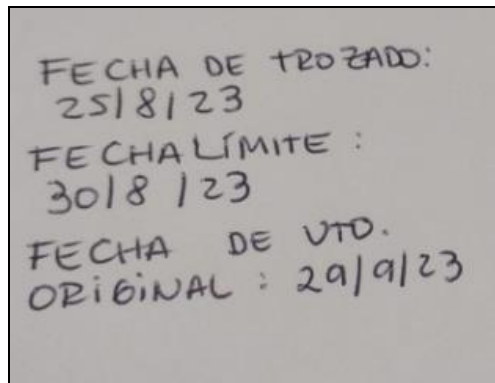 FECHA DE TROZADO:
25/8/23
FECHA LÍMITE :
30/8/23
FECHA DE VTO.
ORIGINAL : 29/9/23